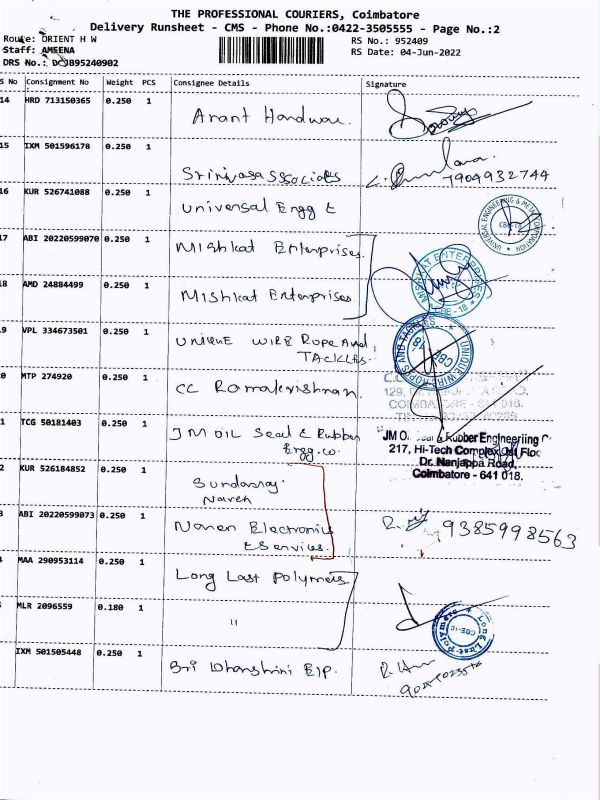 THE PROFESSIONAL COURIERS, Coimbatore
Delivery Runsheet - CMS - Phone No.:0422-3505555 - Page No.:2
Route: ORIENT H W
RS No.: 952409
Staff: AMEENA
RS Date: 04-Jun-2022
DRS No.: DCJB95240902
S No Consignment No Weight PCS Consignee Details Signature
14 HRD 713150365 0.250 1
Arant Hardwar.
15 IXM 501596178 0.250 1
Srinivasa SSociates
7904932744
16 KUR 526741088 0.250 1
Universal Engg E
UNIVERSAL ENGINEERING & METAL CORPORATION
17 ABI 20220599070 0.250 1
Mishkat Enterprises.
18 AMD 24884499 0.250 1
Mishkat Enterprises
MISHKAT ENTERPRISES
CBE - 18
9 VPL 334673501 0.250 1
UNIQUE WIRE Rope And
TACKLES.
UNIQUE WIRE ROPE AND TACKLES
0 MTP 274920 0.250 1
CC Ramakrishnan.
1 TCG 50181403 0.250 1
JM OIL Seal & Rubber
Engg. co.
JM O. Seal & Rubber Engineeriing C
217, Hi-Tech Complex, Ist Floo
Dr. Nanjappa Road,
Coimbatore - 641 018.
2 KUR 526184852 0.250 1
Sundaraj
Naren
3 ABI 20220599073 0.250 1
Naren Electronics
& Services.
9385998563
MAA 290953114 0.250 1
Long Last Polymers
MLR 2096559 0.180 1
"
Long Last Polymers
IXM 501505448 0.250 1
Sri Dharshini E/P.